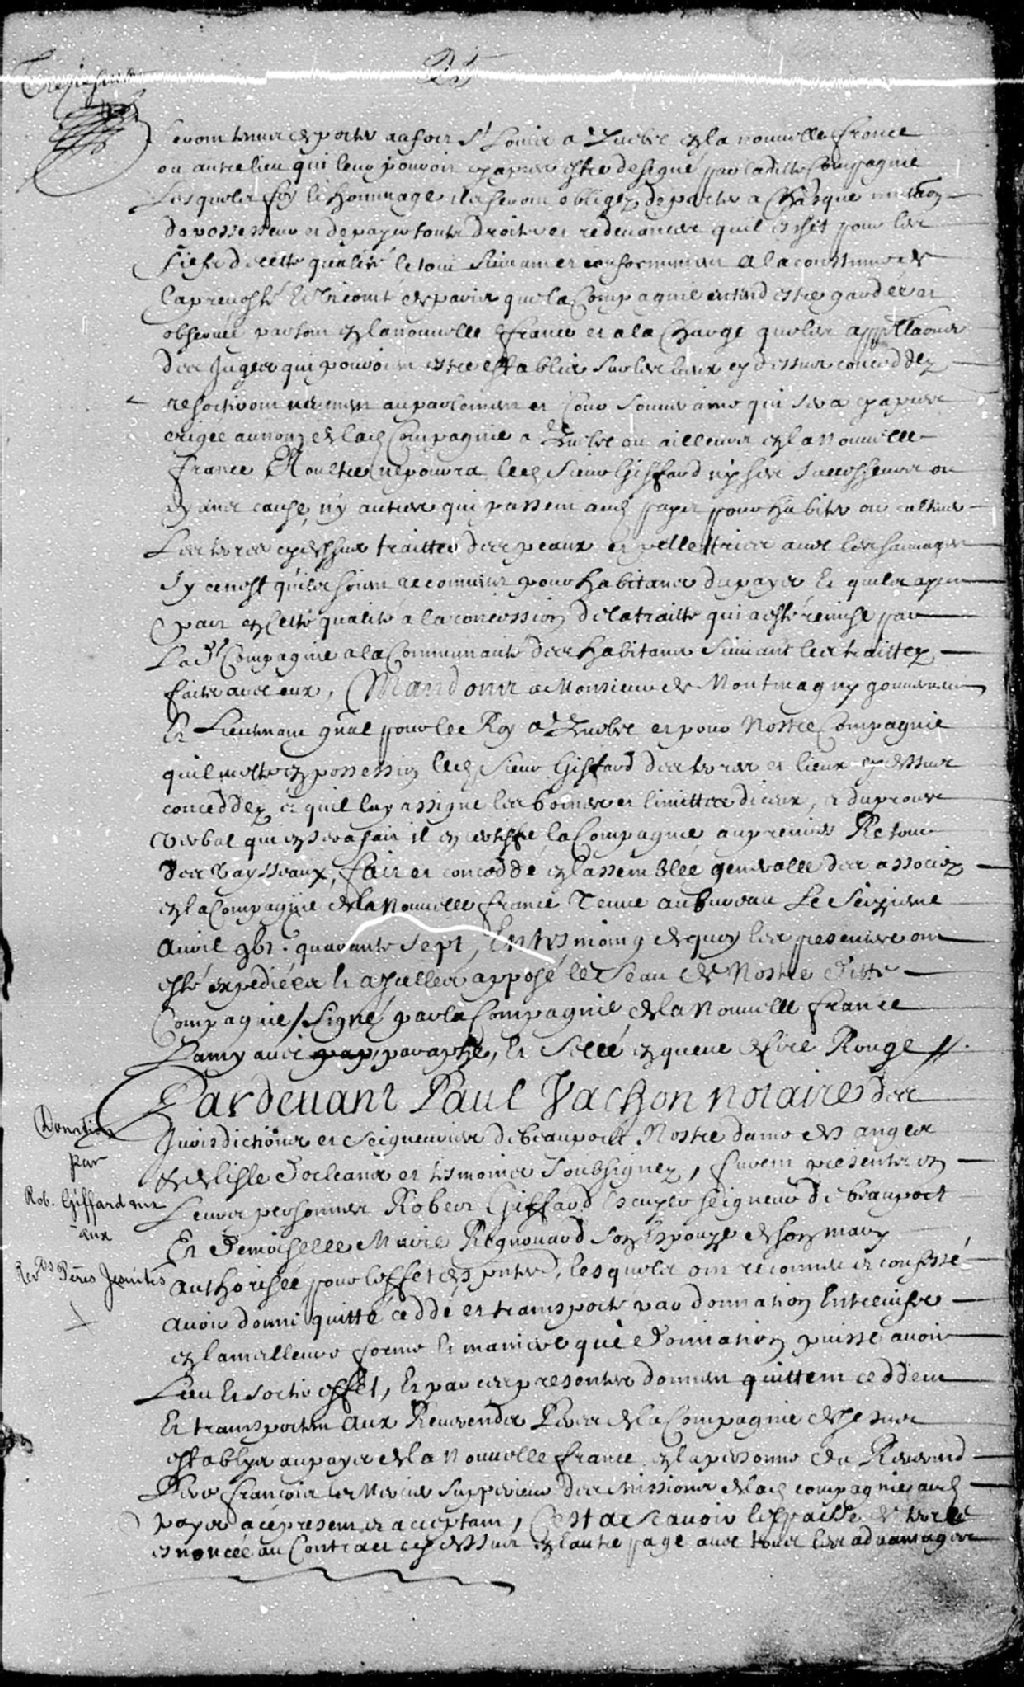 seront tenus de porter au fort St Louis a Quebec en la nouvelle france
ou autre lieu qui leur pouroit cy apres estre designé par ladite Compagnie
Lesquels foy et hommage ils seront obligez de porter a Chasque mutaon
de possesseur et de payer touts droits et redevances quil eschet pour les
fiefs de cette qualité le tout suivant et conformement a la coustume de
la prevosté et vicomté de paris que la Compagnie entend estre gardée et
observée partout en la nouvelle france et a la Charge que les appellaons
des Juges qui pouroient estre establis sur les lieux cy dessus conceddez
resortiront nuement au parlement et Cour souveraine qui sera cy apres
erigée au nom de lad Compagnie a Quebec ou ailleurs en la Nouvelle
france Et oultre ne poura led Sieur Giffard ny ses successeurs ou
ayans cause, ny autres qui passent aud pays pour habiter ou cultiver
Les terres cy dessus traitter des peaux et pelletries avec les sauvages
sy ce nest quils soient reconnus pour habitans du pays et quils ayent
part en cette qualité a la concession de la traitte qui a esté remise par
Lad Compagnie a la Communauté des habitans suivant les traittez
faits avec eux, Mandons a Monsieur de Montmagny gouverneur
Et Lieutenant gnal pour le Roy a Quebec et pour Nostre Compagnie
quil mette en possession led Sieur Giffard des terres et lieux cy dessus
conceddez et quil luy assigne les bornes et limittes diceux, et du proces
verbal quen sera fait il en certiffie la Compagnie au premier Retour
des vaysseaux, fait et concedde en lassemblée generalle des associez
en la Compagnie de la Nouvelle france Tenue au bureau Le Seizieme
Avril gbi. quarante sept, En tesmoing de quoy les presentes ont
esté expediées et a icelles apposé le Seau de Nostre ditte
Compagnie / Signé par la Compagnie de la Nouvelle france
Lamy avec paraphe, Et Scelé en queue de cire Rouge //.
Pardevant Paul Vachon notaire des
Donation
par
Rob. Giffard
aux
Revds Pères Jesuites
Jurisdictions et seigneuries de beauport Nostre dame des anges
et de lisle d'orleans et tesmoins soubsignez, furent presents en
Leurs personnes Robert Giffard Escuyer seigneur de beauport
Et Demoiselle Marie Regnouard son Espouze de son mary
authorisée pour leffet des pntes, lesquels ont reconnu et confessé
avoir donné quitté ceddé et transporté par donnation Entrevifs
en la meilleure forme et maniere que donnation puisse avoir
Lieu et sortir effet, Et par ces presentes donnent quittent ceddent
Et transportent aux Reverends Peres de la Compagnie de Jesus
establys au pays de la nouvelle france, en la personne du Reverend
Pere francois le Mercier supperieur des missions de lad compagnie aud
pays a ce present et acceptant, Cest ascavoir lespasse de terre
enoncée au Contract cy dessus en lautre page avec tous les advantages